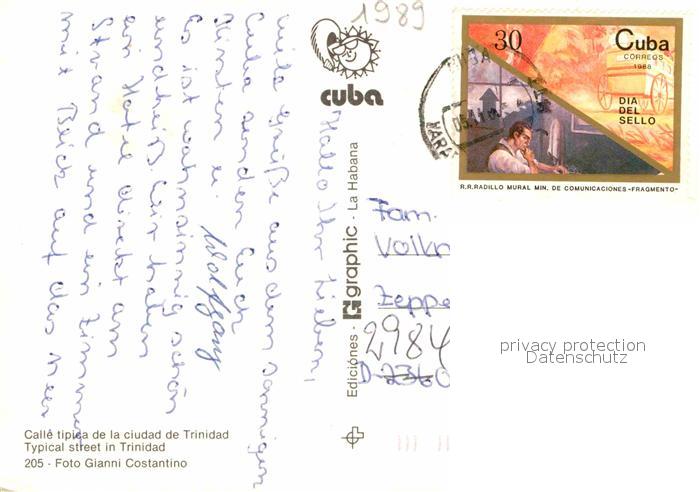 1989
30 Cuba
CORREOS
1988
DIA
DEL
SELLO
R.R.RADILLO MURAL MIN. DE COMUNICACIONES-FRAGMENTO-
cuba
Hallo Ihr Lieben,
viele Grüße aus dem sonnigen
Cuba senden Euch
Kirsten u. Wolfgang
Es ist wahnsinnig schön
und heiß. Wir haben
ein Hotel direkt am
Strand und ein Zimmer
mit Blick auf das Meer
Ediciónes · graphic · La Habana
Fam.
Volk
Zeppe
2984
D-2360
privacy protection
Datenschutz
Calle tipica de la ciudad de Trinidad
Typical street in Trinidad
205 - Foto Gianni Costantino